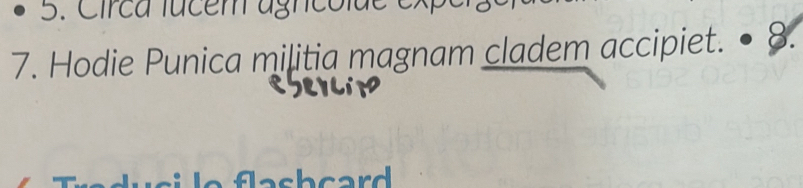 • 5. Circa lucem agricolae
7. Hodie Punica militia magnam cladem accipiet. • 8.
esercito
Traduci le flashcard